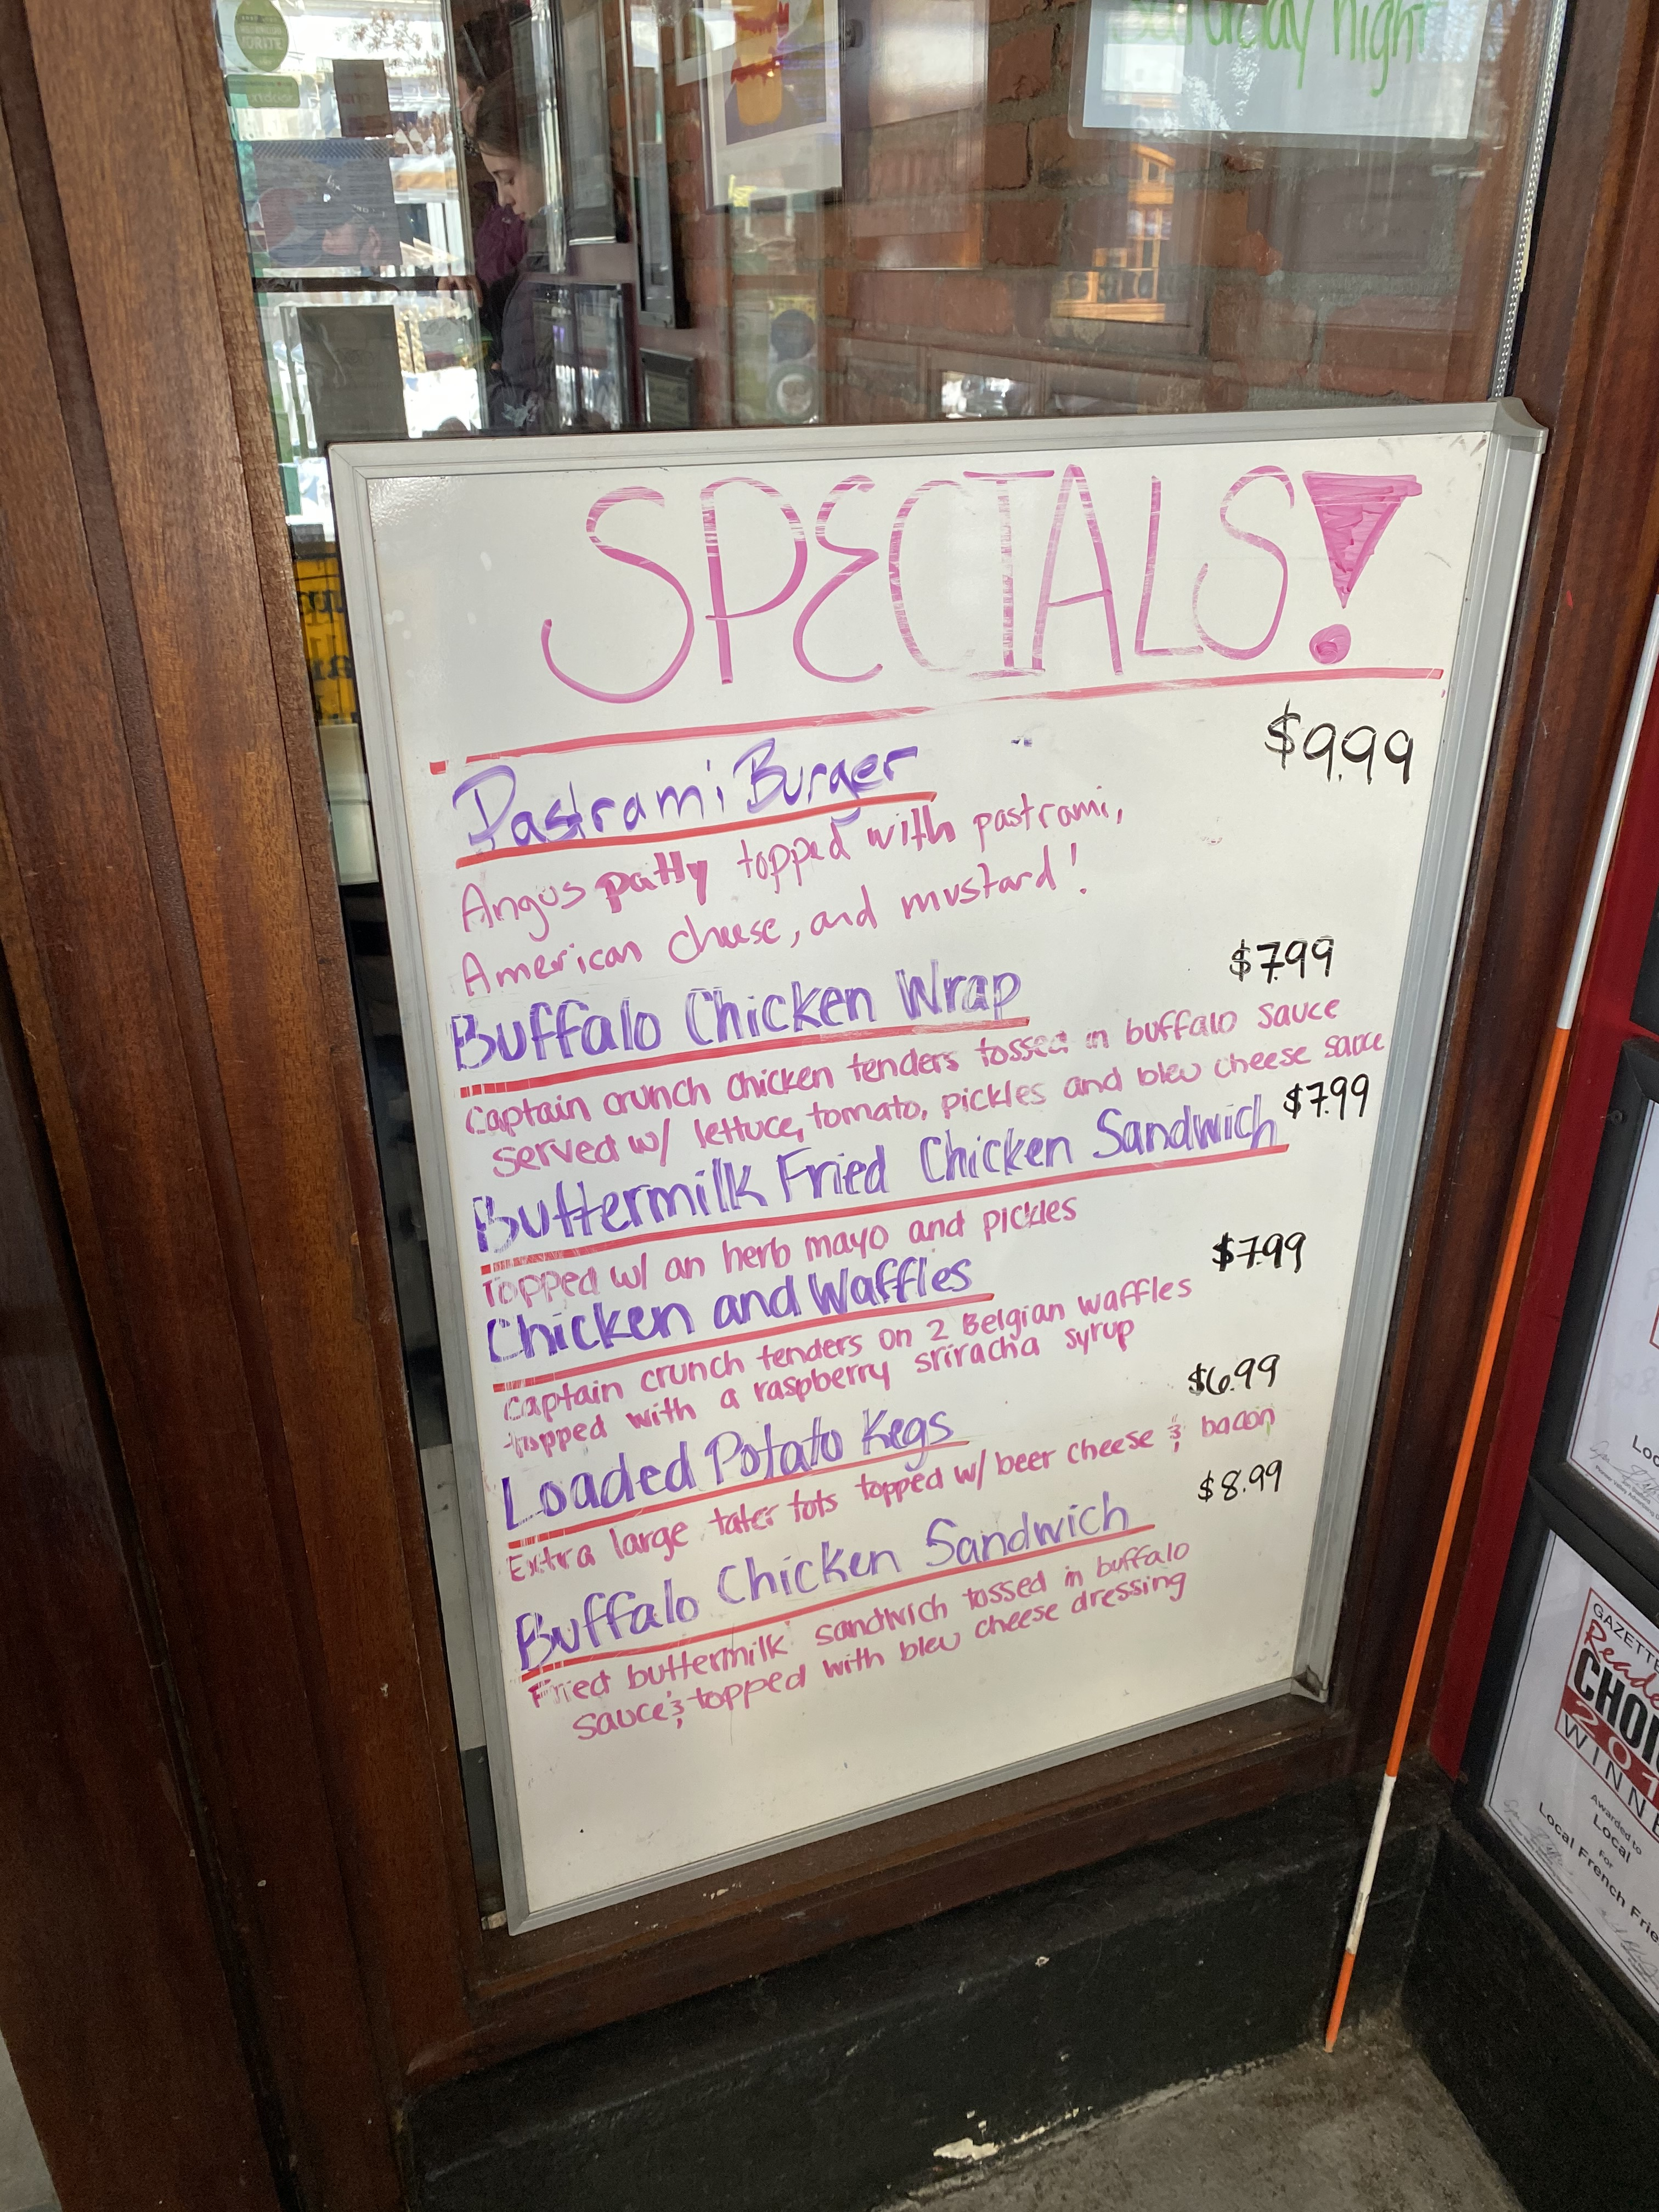 Saturday night
SPECIALS!
Pastrami Burger $9.99
Angus patty topped with pastrami,
American cheese, and mustard!
Buffalo Chicken Wrap $7.99
Captain crunch chicken tenders tossed in buffalo sauce
served w/ lettuce, tomato, pickles and bleu cheese sauce
Buttermilk Fried Chicken Sandwich $7.99
Topped w/ an herb mayo and pickles
Chicken and Waffles $7.99
Captain crunch tenders on 2 Belgian waffles
topped with a raspberry sriracha syrup
Loaded Potato Kegs $6.99
Extra large tater tots topped w/ beer cheese & bacon
Buffalo Chicken Sandwich $8.99
Fried buttermilk sandwich tossed in buffalo
sauce & topped with bleu cheese dressing
Awarded to
Local
For